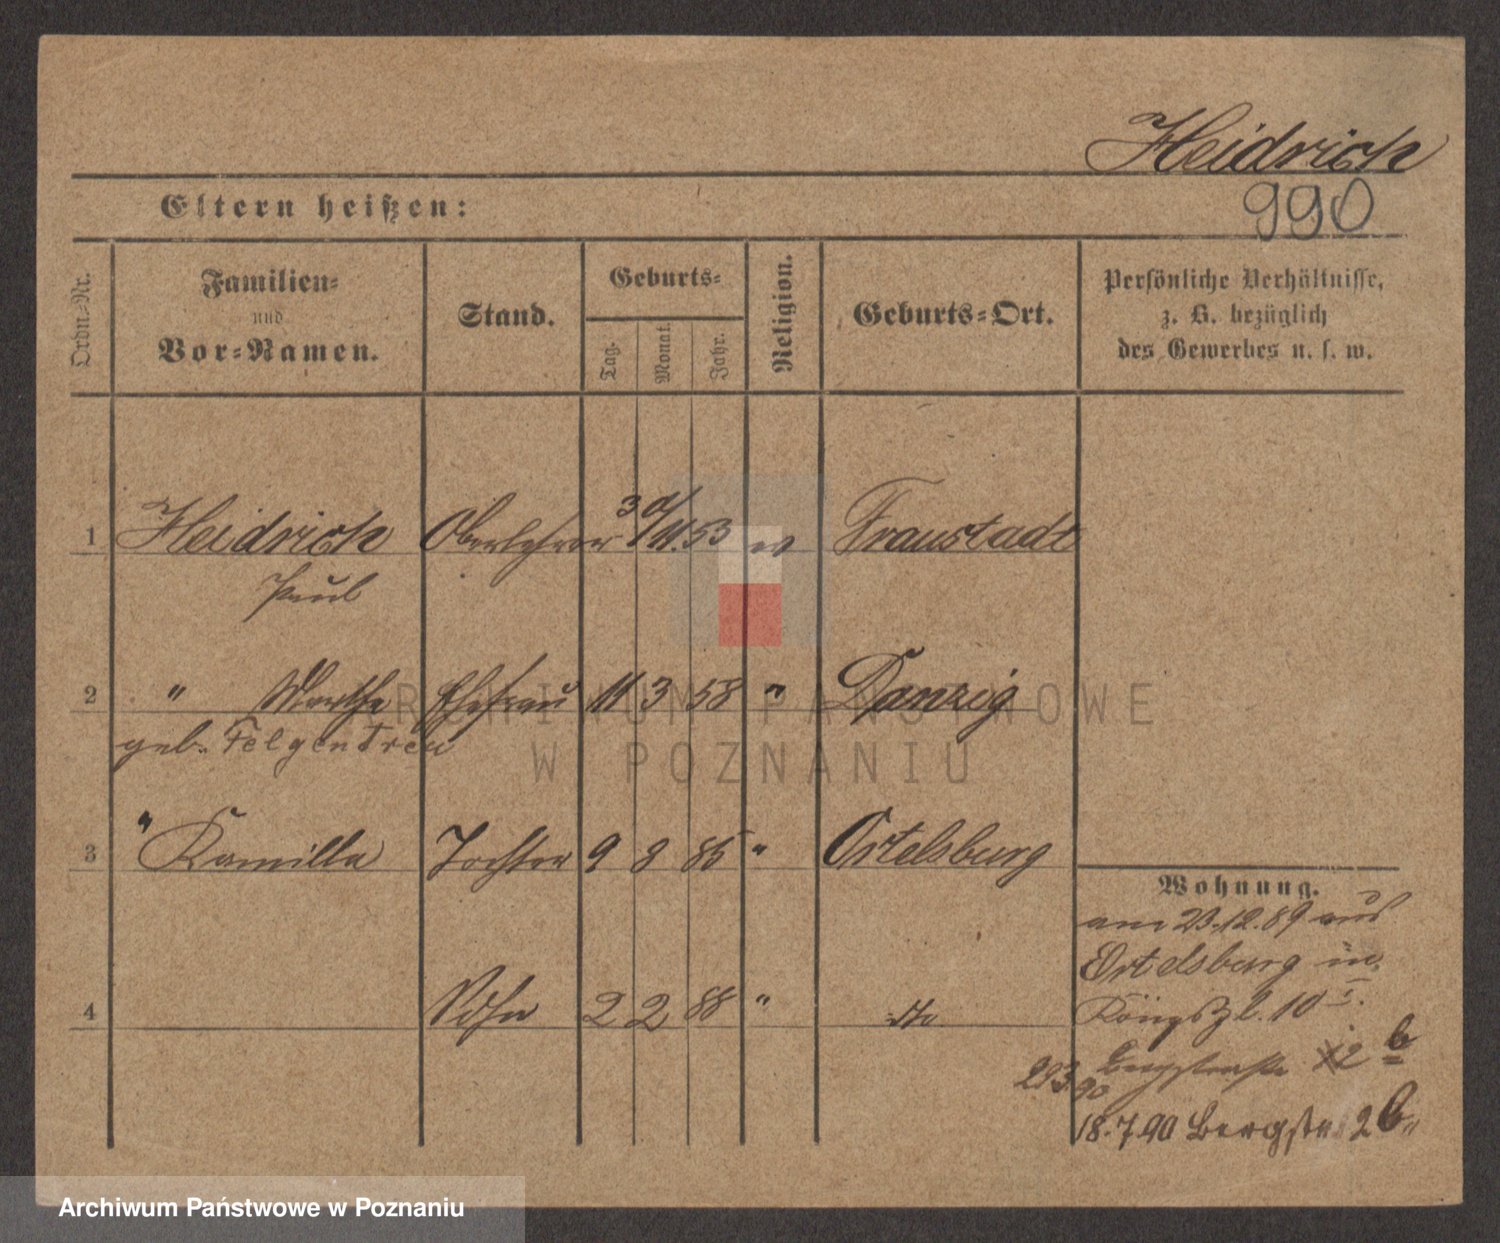 Heidrich
990
Eltern heißen:
Ordn.-Nr.
Familien-
und
Vor-Namen.
Stand.
Geburts-
Tag.
Monat.
Jahr.
Religion.
Geburts-Ort.
Persönliche Verhältnisse,
z. B. bezüglich
des Gewerbes u. s. w.
1 Heidrich Oberlehrer 30/11. 53 ev Fraustadt
Paul
2 " Marthe Ehefrau 11 3 58 " Danzig
geb. Felgentreu
3 " Kamilla Tochter 9 8 85 " Ortelsburg
4 Sohn 2 2 88 " dto
Wohnung.
am 23.12.89 aus
Ortelsburg in
Königspl. 10 I.
29.3.90 Bergstraße 12 b
18.7.90 Bergstr. 2 b
ARCHIWUM PAŃSTWOWE
W POZNANIU
Archiwum Państwowe w Poznaniu